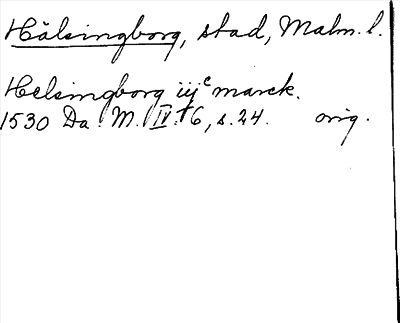 Hälsingborg, stad, Malm. l.
Helsingborg iijᶜ marck.
1530 Da. M. IV. 6, s. 24. orig.